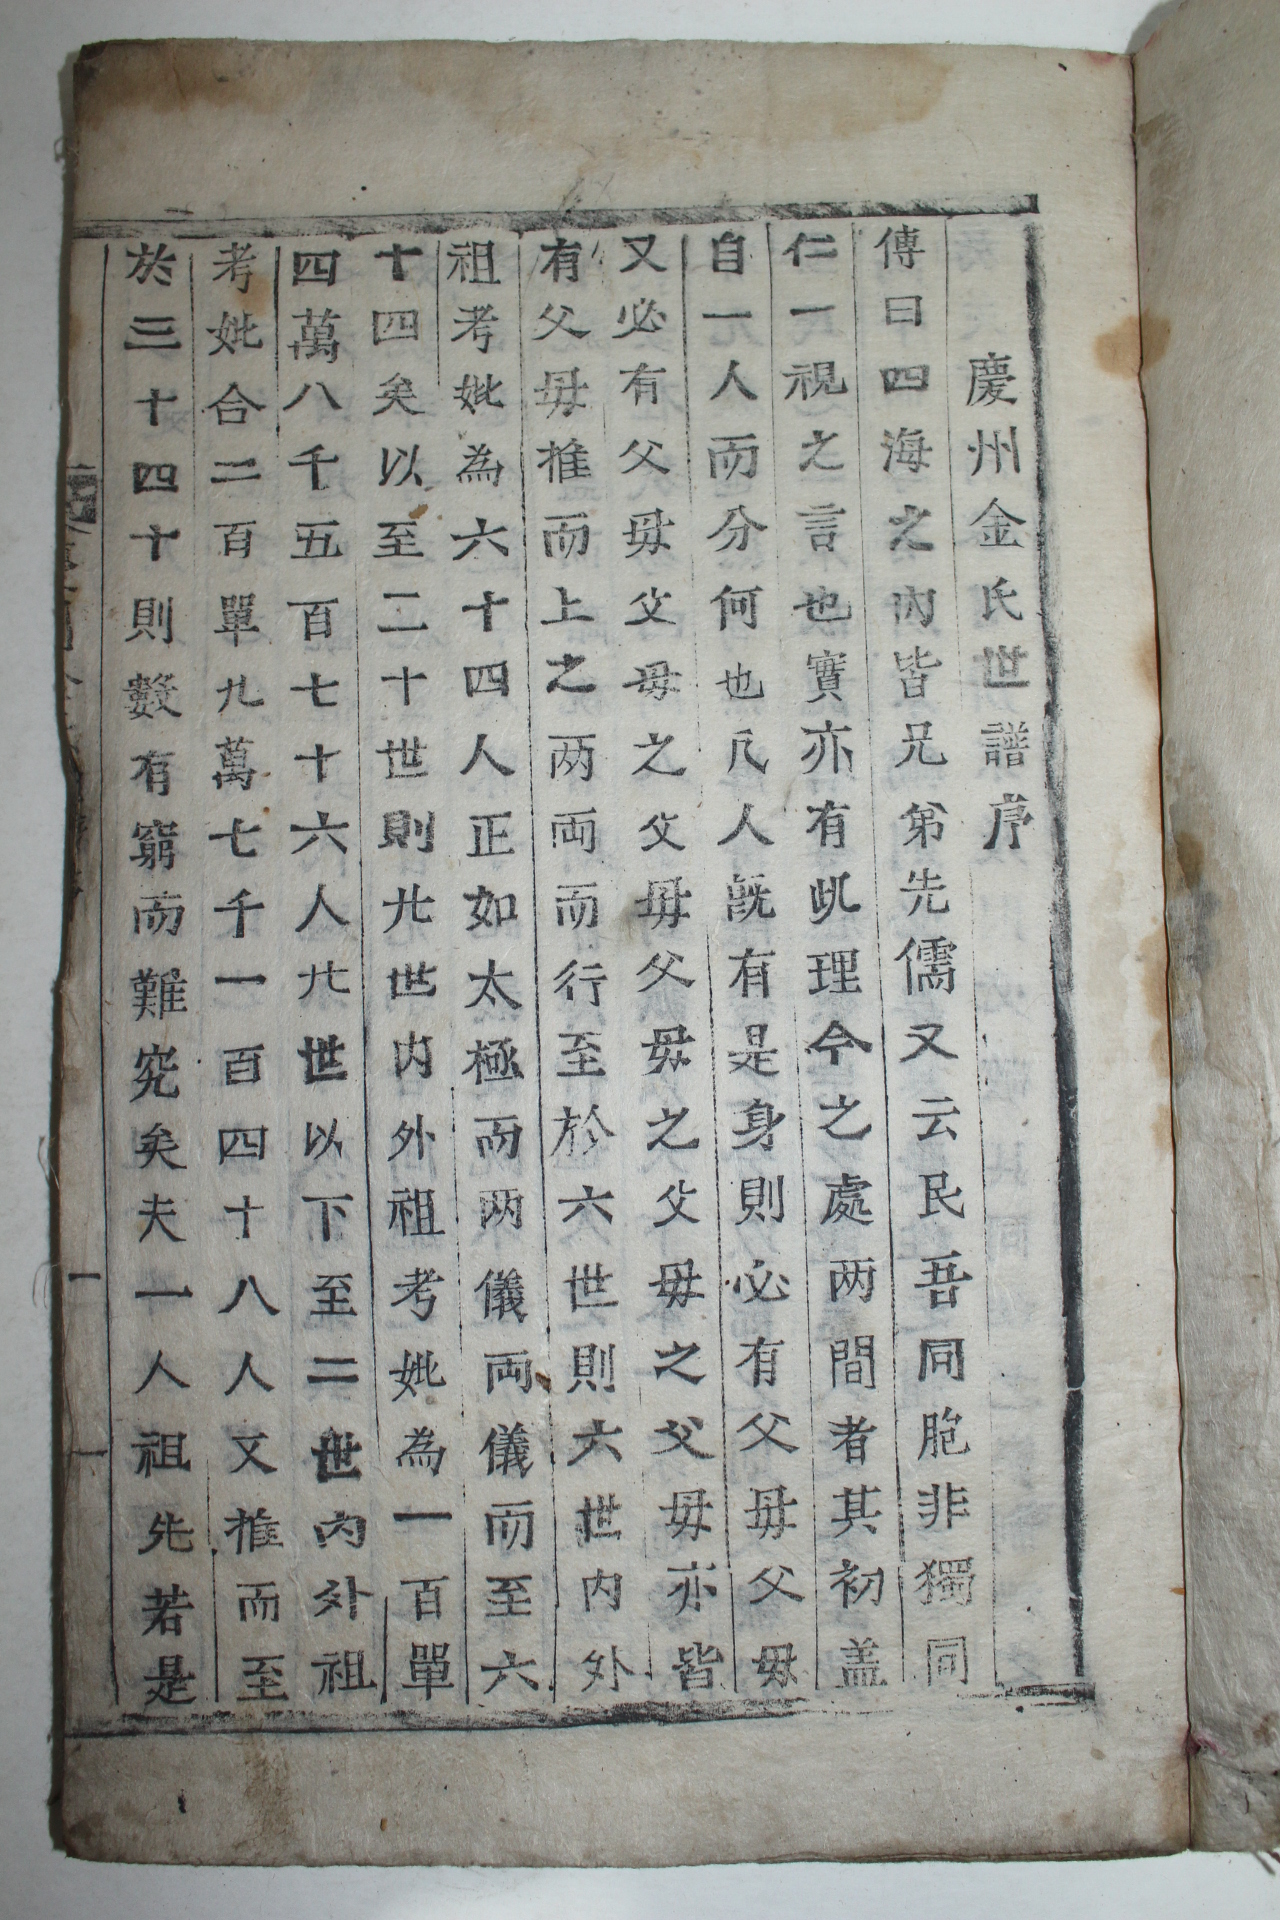 慶州金氏世譜序
傳曰四海之內皆兄弟先儒又云民吾同胞非獨同
仁一視之言也實亦有此理今之處两間者其初盖
自一人而分何也凡人旣有是身則必有父母父母
又必有父母父母之父母父母之父母之父母亦皆
有父母推而上之两両而行至於六世則六世内外
祖考妣為六十四人正如太極而两儀両儀而至六
十四矣以至二十世則廿世内外祖考妣為一百單
四萬八千五百七十六人廿世以下至二世內外祖
考妣合二百單九萬七千一百四十八人又推而至
於三十四十則數有窮而難究矣夫一人祖先若是
一